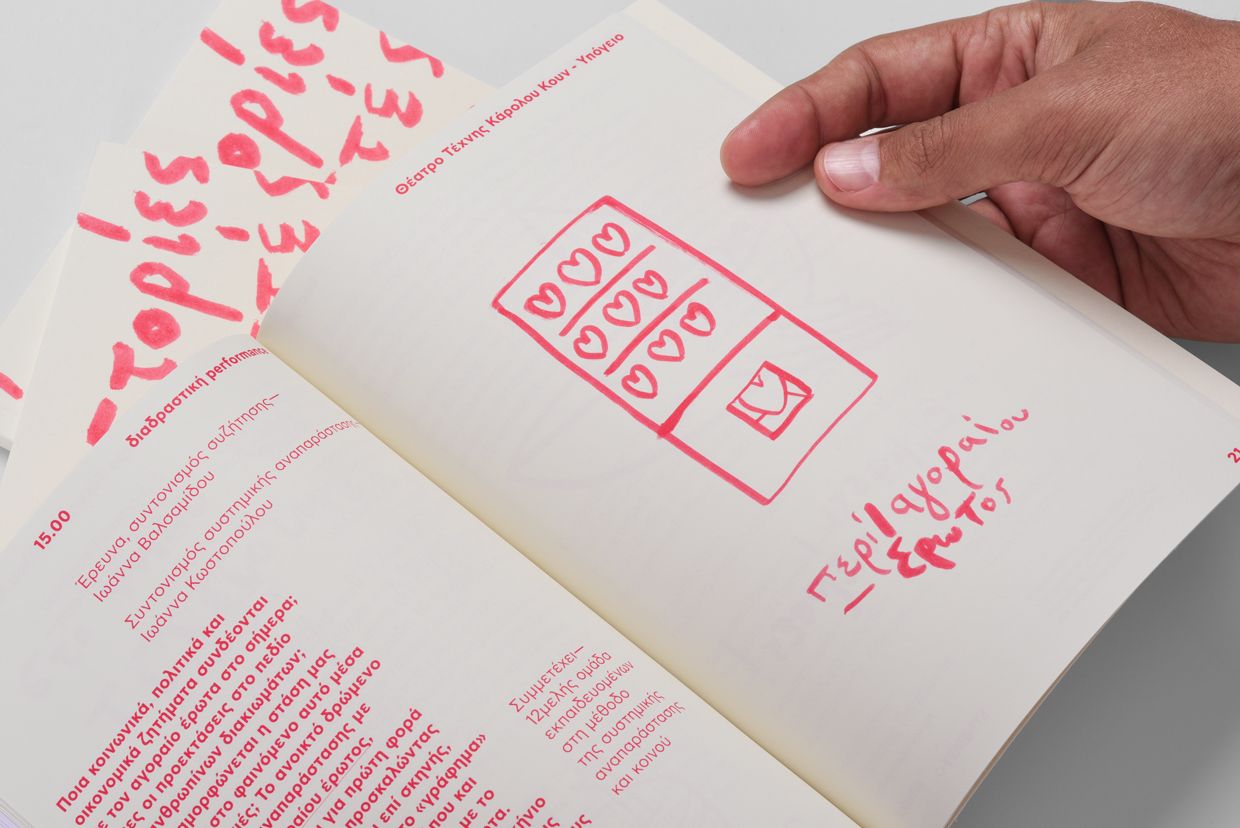 –τορίες
τές
–τορίες
τές
διαδραστική performance
15.00
Έρευνα, συντονισμός συζήτησης—
Ιωάννα Βαλσαμίδου
Συντονισμός συστημικής αναπαράστασης
Ιωάννα Κωστοπούλου
Ποια κοινωνικά, πολιτικά και
οικονομικά ζητήματα συνδέονται
με τον αγοραίο έρωτα στο σήμερα;
οι προεκτάσεις στο πεδίο
ανθρωπίνων δικαιωμάτων;
διαμορφώνεται η στάση μας
στο φαινόμενο αυτό μέσα
Το ανοικτό δρώμενο
αναπαράστασης με
έρωτος,
για πρώτη φορά
προσκαλώντας
επί σκηνής,
το «γράφημα»
που και
με το
Συμμετέχει—
12μελής ομάδα
εκπαιδευομένων
στη μέθοδο
της συστημικής
αναπαράστασης
και κοινού
Θέατρο Τέχνης Κάρολου Κουν - Υπόγειο
περί αγοραίου
έρωτος
21